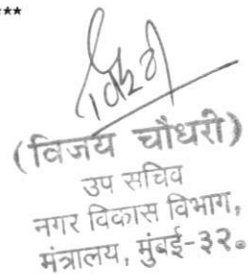 ***
(विजय चौधरी)
उप सचिव
नगर विकास विभाग,
मंत्रालय, मुंबई-३२.